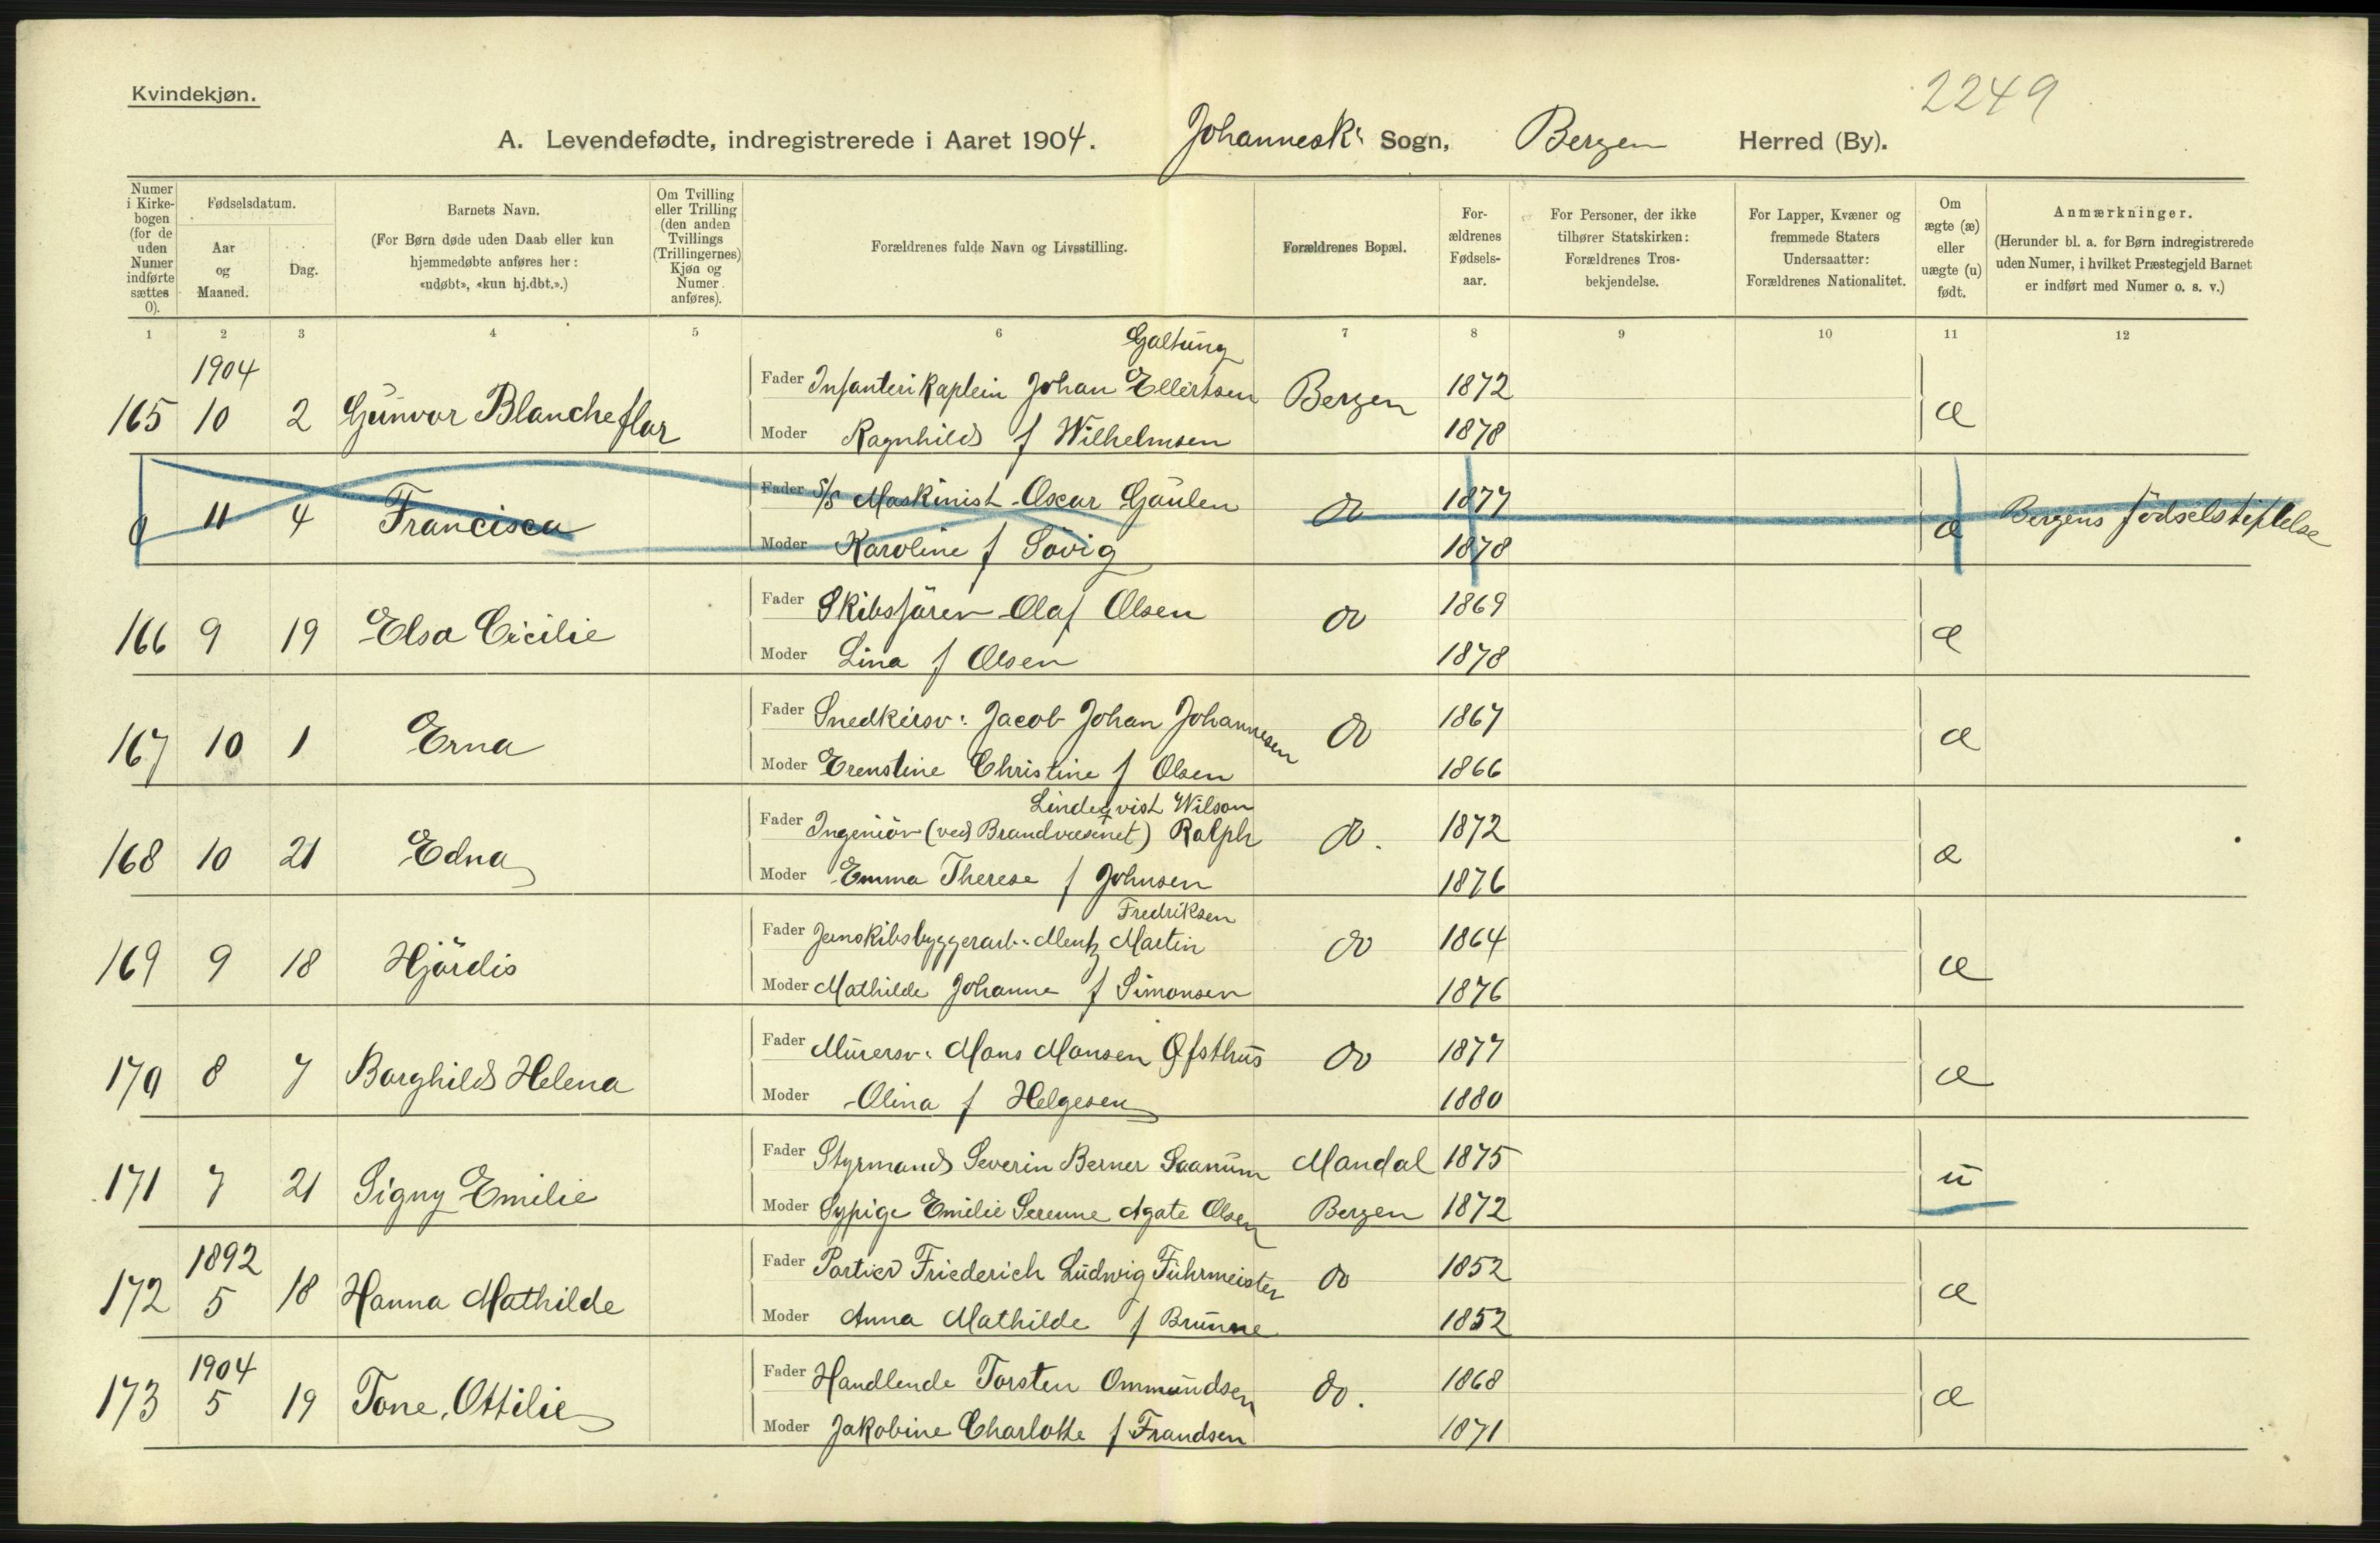 2249
Kvindekjøn.
A. Levendefødte, indregistrerede i Aaret 1904. Johannesk: Sogn, Bergen Herred (By).
Numer i Kirkebogen (for de uden Numer indførte sættes 0).
Fødselsdatum.
Aar og Maaned.
Dag.
Barnets Navn.
(For Børn døde uden Daab eller kun
hjemmedøbte anføres her:
«udøbt», «kun hj.dbt.».)
Om Tvilling
eller Trilling
(den anden
Tvillings
(Trillingernes)
Kjøn og
Numer
anføres).
Forældrenes fulde Navn og Livsstilling.
Forældrenes Bopæl.
For-
ældrenes
Fødsels-
aar.
For Personer, der ikke
tilhører Statskirken:
Forældrenes Tros-
bekjendelse.
For Lapper, Kvæner og
fremmede Staters
Undersaatter:
Forældrenes Nationalitet.
Om
ægte (æ)
eller
uægte (u)
født.
Anmærkninger.
(Herunder bl. a. for Børn indregistrerede
uden Numer, i hvilket Præstegjeld Barnet
er indført med Numer o. s. v.)
1 2 3 4 5 6 7 8 9 10 11 12
Galtung
1904 Fader Infanterikaptein Johan Ellertsen Bergen 1872
165 10 2 Gunvor Blancheflor æ
Moder Ragnhild f Wilhelmsen 1878
Fader S/S Maskinist Oscar Gaulen do 1877
0 11 4 Francisca æ Bergens fødselstiftelse
Moder Karoline f Søvig 1878
Fader Skibsfører Olaf Olsen do 1869
166 9 19 Elsa Cicilie æ
Moder Lina f Olsen 1878
Fader Snedkersv: Jacob Johan Johannesen do 1867
167 10 1 Erna æ
Moder Erenstine Christine f Olsen 1866
Lindeqvist Wilson
Fader Ingeniør (ved Brandvæsenet) Ralph do. 1872
168 10 21 Edna æ
Moder Emma Therese f Johnsen 1876
Fredriksen
Fader Jernskibsbyggerarb: Mentz Martin do 1864
169 9 18 Hjördis æ
Moder Mathilde Johanne f Simonsen 1876
Fader Murersv: Mons Monsen Øfsthus do 1877
170 8 7 Borghild Helena æ
Moder Olina f Helgesen 1880
Fader Styrmand Severin Berner Saanum Mandal 1875
171 7 21 Signy Emilie u
Moder Sypige Emilie Serenne Agate Olsen Bergen 1872
1892 Fader Portier Friederich Ludwig Führmeister do 1852
172 5 18 Hanna Mathilde æ
Moder Anna Mathilde f Brunne 1852
1904 Fader Handlende Torsten Ommundsen do. 1868
173 5 19 Tone, Ottilie æ
Moder Jakobine Charlotte f Frandsen 1871